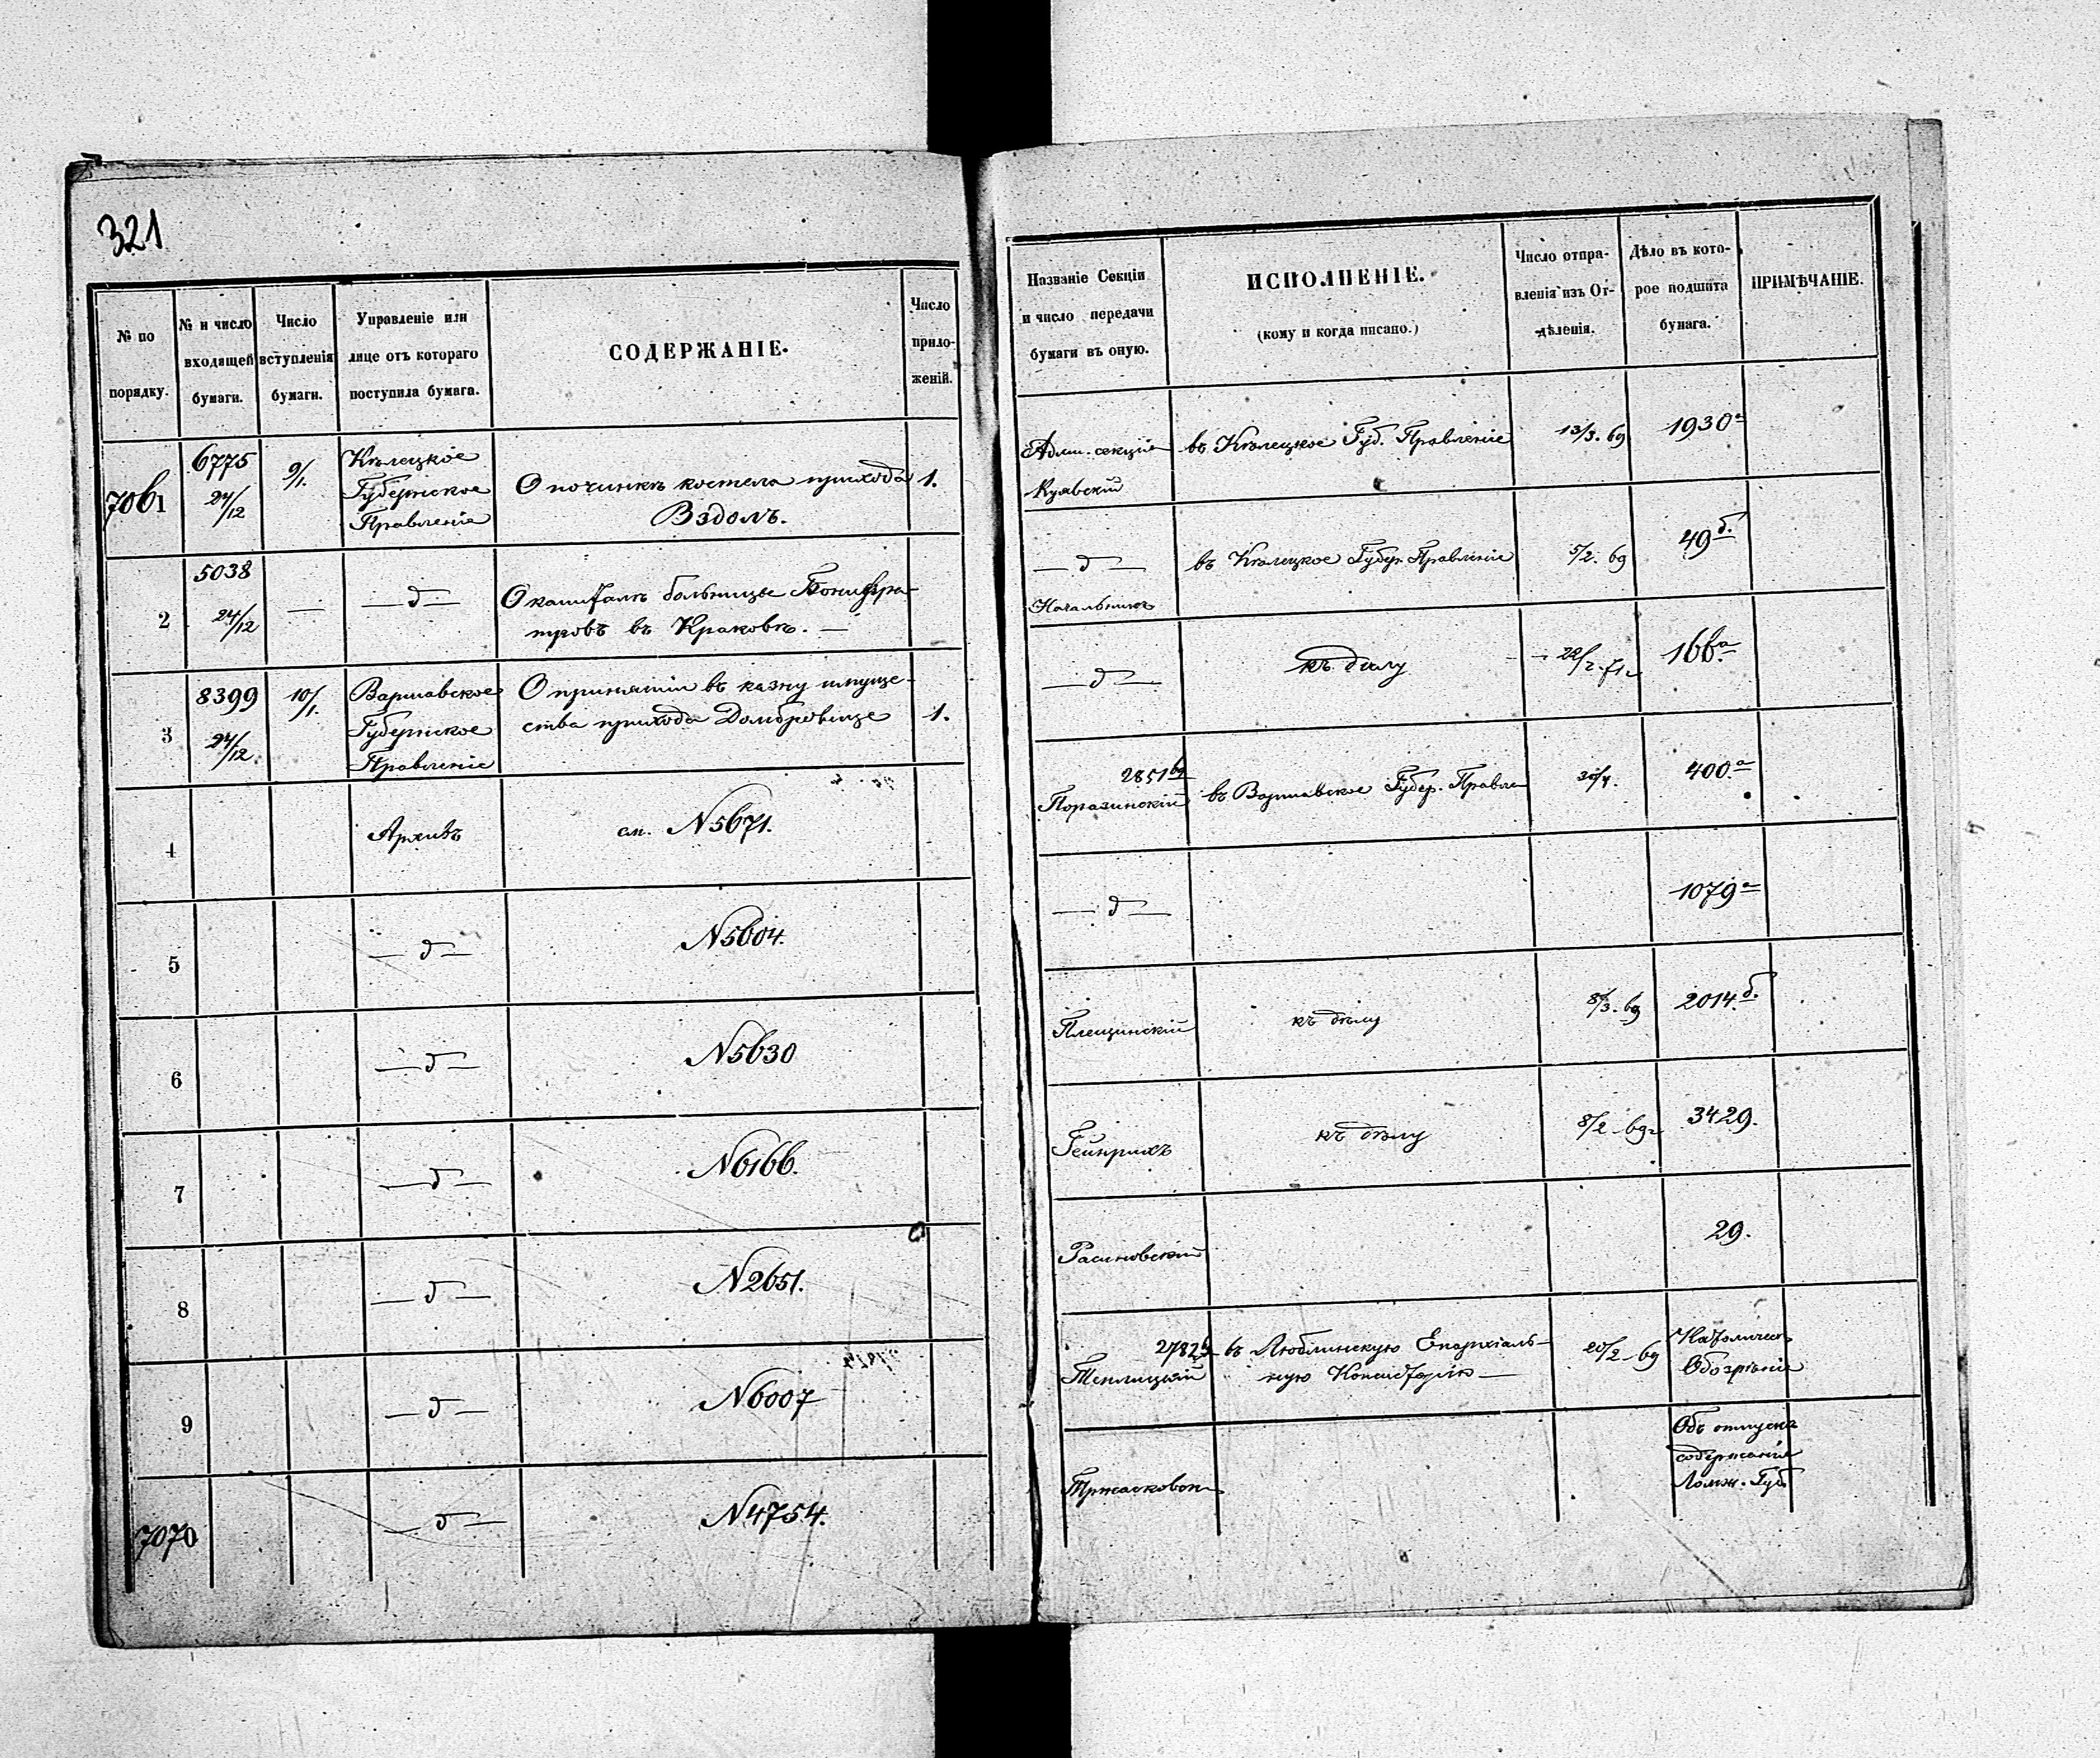 321
№ по
порядку.
№ и число
входящей
бумаги.
Число
вступленія
бумаги.
Управленіе или
лице отъ котораго
поступила бумага.
СОДЕРЖАНІЕ.
Число
прило-
женій.
7061
6775
24/12
9/1.
Кѣлецкое
Губернское
Правленіе
О починкѣ костела прихода
Вздолъ.
1.
2
5038
24/12
—
— д —
О капиталѣ больницы Бонифра-
тровъ въ Краковѣ. —
3
8399
24/12.
10/1.
Варшавское
Губернское
Правленіе
О принятіи въ казну имуще-
ства прихода Домбровице
1.
4
Архивъ
см. N 5671.
5
— д —
N 5604.
6
— д —
N 5630
7
— д —
N 6166.
8
— д —
N 2651.
9
— д —
N 6007
7070
— д —
N 4754.
Названіе Секціи
и число передачи
бумаги въ оную.
ИСПОЛНЕНІЕ.
(кому и когда писано.)
Число отпра-
вленія изъ От-
дѣленія.
Дѣло въ кото-
рое подшита
бумага.
ПРИМѢЧАНІЕ.
Адми. секція
Куявскій
въ Кѣлецкое Губ. Правленіе
13/3. 69
1930 а
— д —
Начальникъ
въ Кѣлецкое Губер. Правленіе
5/2. 69
49 б.
— д —
къ дѣлу
22/2. 71
166 а
2851
Поразинскій
въ Варшавское Губер. Правле
30/4.
400. а
— д —
1079 а
Плещинскій
къ дѣлу
8/3. 69
2014. б.
Гейнрихъ
къ дѣлу
8/2 69 г
3429.
Расиновскій
29.
2782
Теплицкій
въ Люблинскую Епархіаль-
ную Консисторію —
20/2 69
Католичес.
Обозрѣніе
Объ отпускѣ
содержанія
Ломж. Губ.